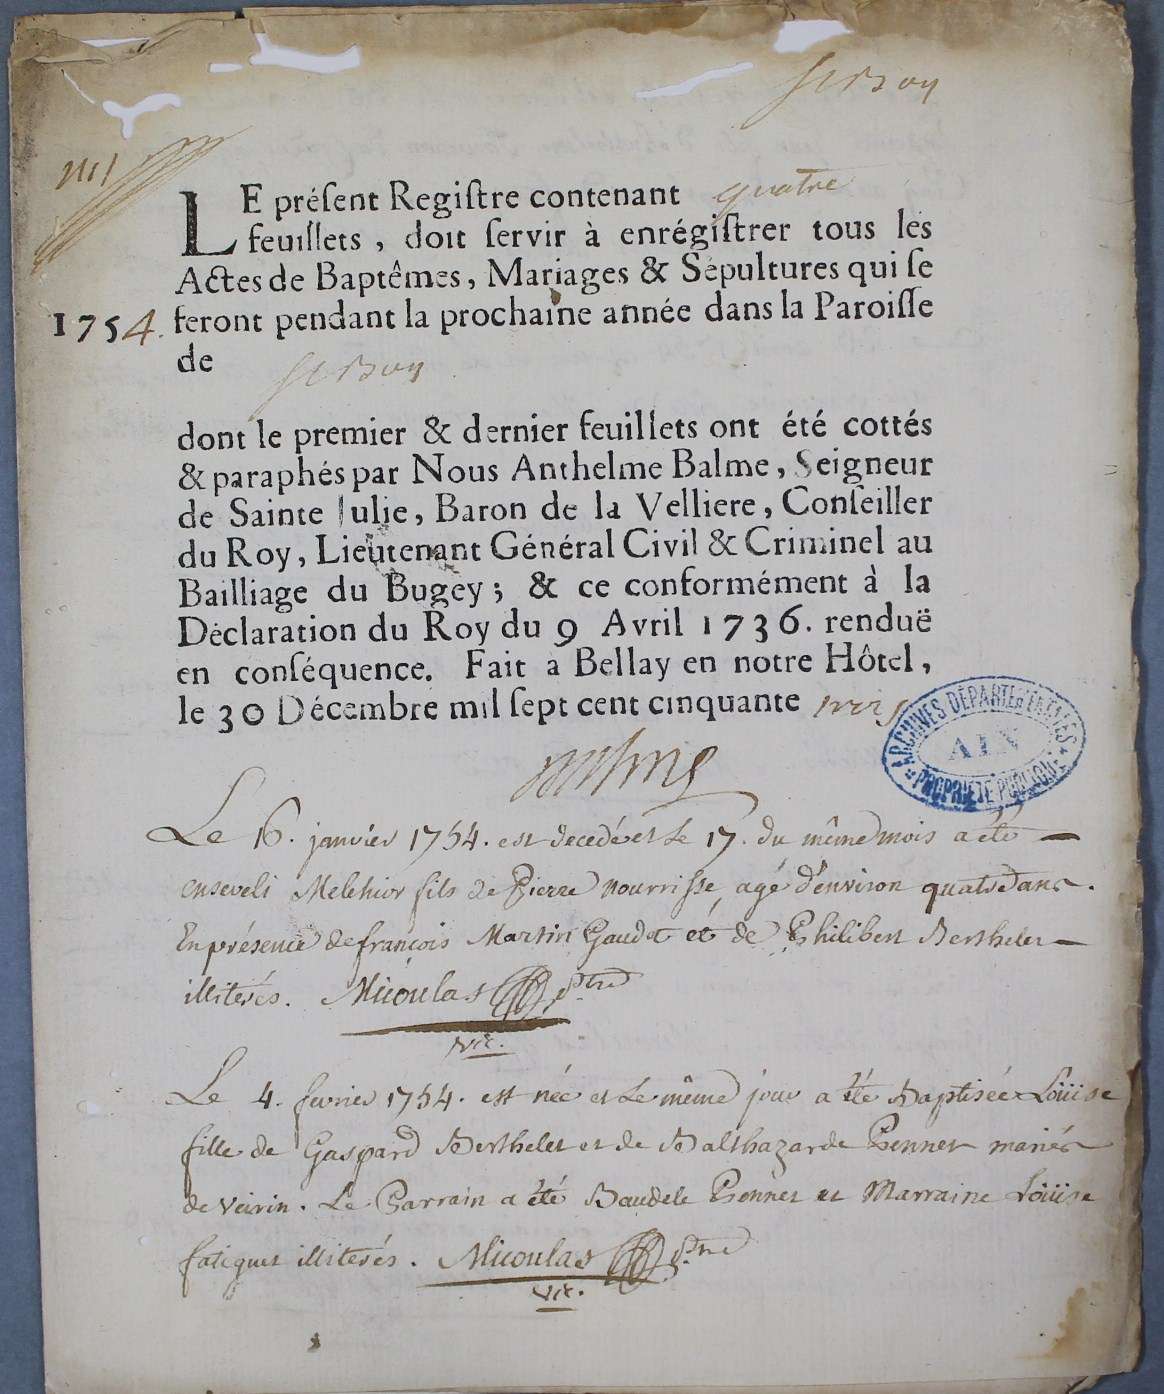 LE préſent Regiſtre contenant quatre
feuillets, doit ſervir à enrégiſtrer tous les
Actes de Baptêmes, Mariages & Sépultures qui ſe
1754. feront pendant la prochaine année dans la Paroiſſe
de
dont le premier & dernier feuillets ont été cottés
& paraphés par Nous Anthelme Balme, Seigneur
de Sainte Julie, Baron de la Velliere, Conſeiller
du Roy, Lieutenant Général Civil & Criminel au
Bailliage du Bugey; & ce conformément à la
Déclaration du Roy du 9 Avril 1736. renduë
en conſéquence. Fait à Bellay en notre Hôtel,
le 30 Décembre mil ſept cent cinquante
ARCHIVES DÉPARTEMENTALES
AIN
PROPRIÉTÉ PUBLIQUE
Le 16. janvier 1754. est decedé et le 17. du même mois a été
enseveli Melchior fils de Pierre nourrisse, agé d'environ quatre ans.
En présence de françois Martin Gaudet et de Philibert Berthelet
illiterés. Micoulas ptre
vic.
Le 4. fevrier 1754. est née et le même jour a été Baptisée Loüise
fille de Gaspard Berthelet et de Balthazarde Ponnet mariés
de veirin. Le Parrain a été Baudele Ponnet et Marraine Loüise
illiterés. Micoulas ptre
vic.